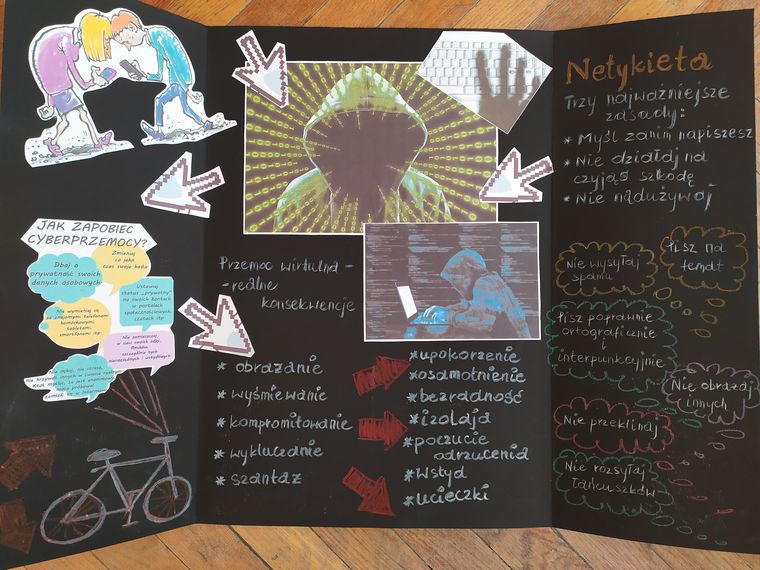 JAK ZAPOBIEC
CYBERPRZEMOCY?
Zmieniaj
co jakiś
czas swoje hasła
Dbaj o
prywatność swoich
danych osobowych
Ustawiaj
status „prywatny"
na swoich kontach
w portalach
społecznościowych,
czatach itp.
Nie wymieniaj się
ze znajomymi telefonami
komórkowymi,
tabletami,
smartfonami itp.
Nie zamieszczaj
w sieci swoich zdjęć,
filmików,
szczególnie tych
nieprzyzwoitych i wstydliwych
Przemoc wirtualna -
- realne
konsekwencje
* obrażanie
* wyśmiewanie
* kompromitowanie
* wykluczanie
* szantaż
* upokorzenie
* osamotnienie
* bezradność
* izolacja
* poczucie
odrzucenia
* wstyd
* ucieczki
Netykieta
Trzy najważniejsze
zasady:
* Myśl zanim napiszesz
* Nie działaj na
czyjąś szkodę
* Nie nadużywaj
Nie wysyłaj
spamu
Pisz na
temat
Pisz poprawnie
ortograficznie
i
interpunkcyjnie
Nie obrażaj
innych
Nie przeklinaj
Nie rozsyłaj
łańcuszków